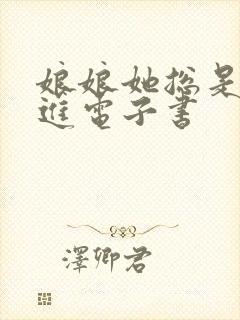 娘娘她总是
進電子書
澤卿君